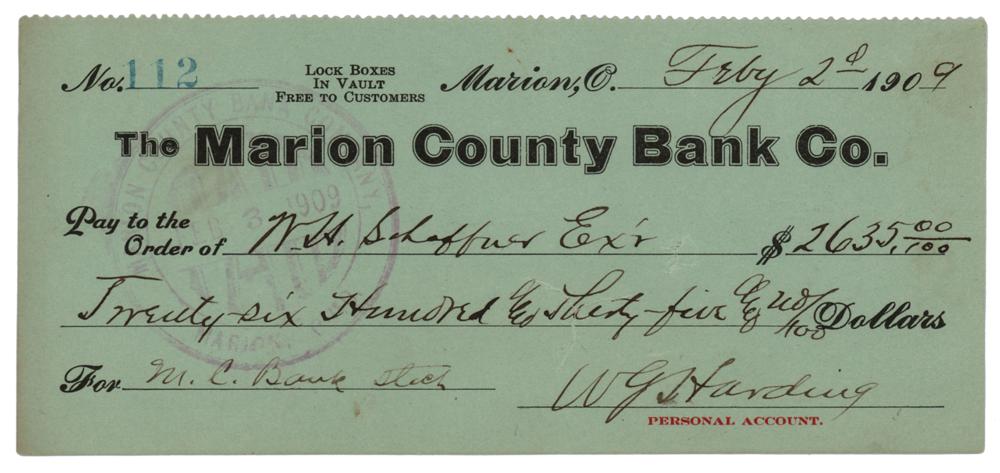 No. 112
LOCK BOXES
IN VAULT
FREE TO CUSTOMERS
Marion, O. Feby 2d 1909
The Marion County Bank Co.
Pay to the
Order of W.H. Schaffner Ex'r $2635.00/100
Twenty-six Hundred & Thirty-five & no/100 Dollars
For M. C. Bank Stock
WGHarding
PERSONAL ACCOUNT.
MARION COUNTY BANK COMPANY,
3 1909
PAID
MARION,